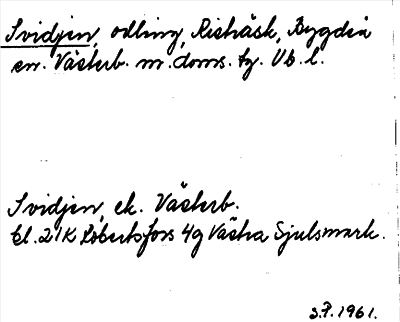 Svidjen, odling, Risbäsk, Bygdeå
sn. Västerb. m. doms. tg. Vb. l.
Svidjen, ek. Västerb.
bl. 21K Robertsfors 4g Västra Sjulsmark.
3.7.1961.